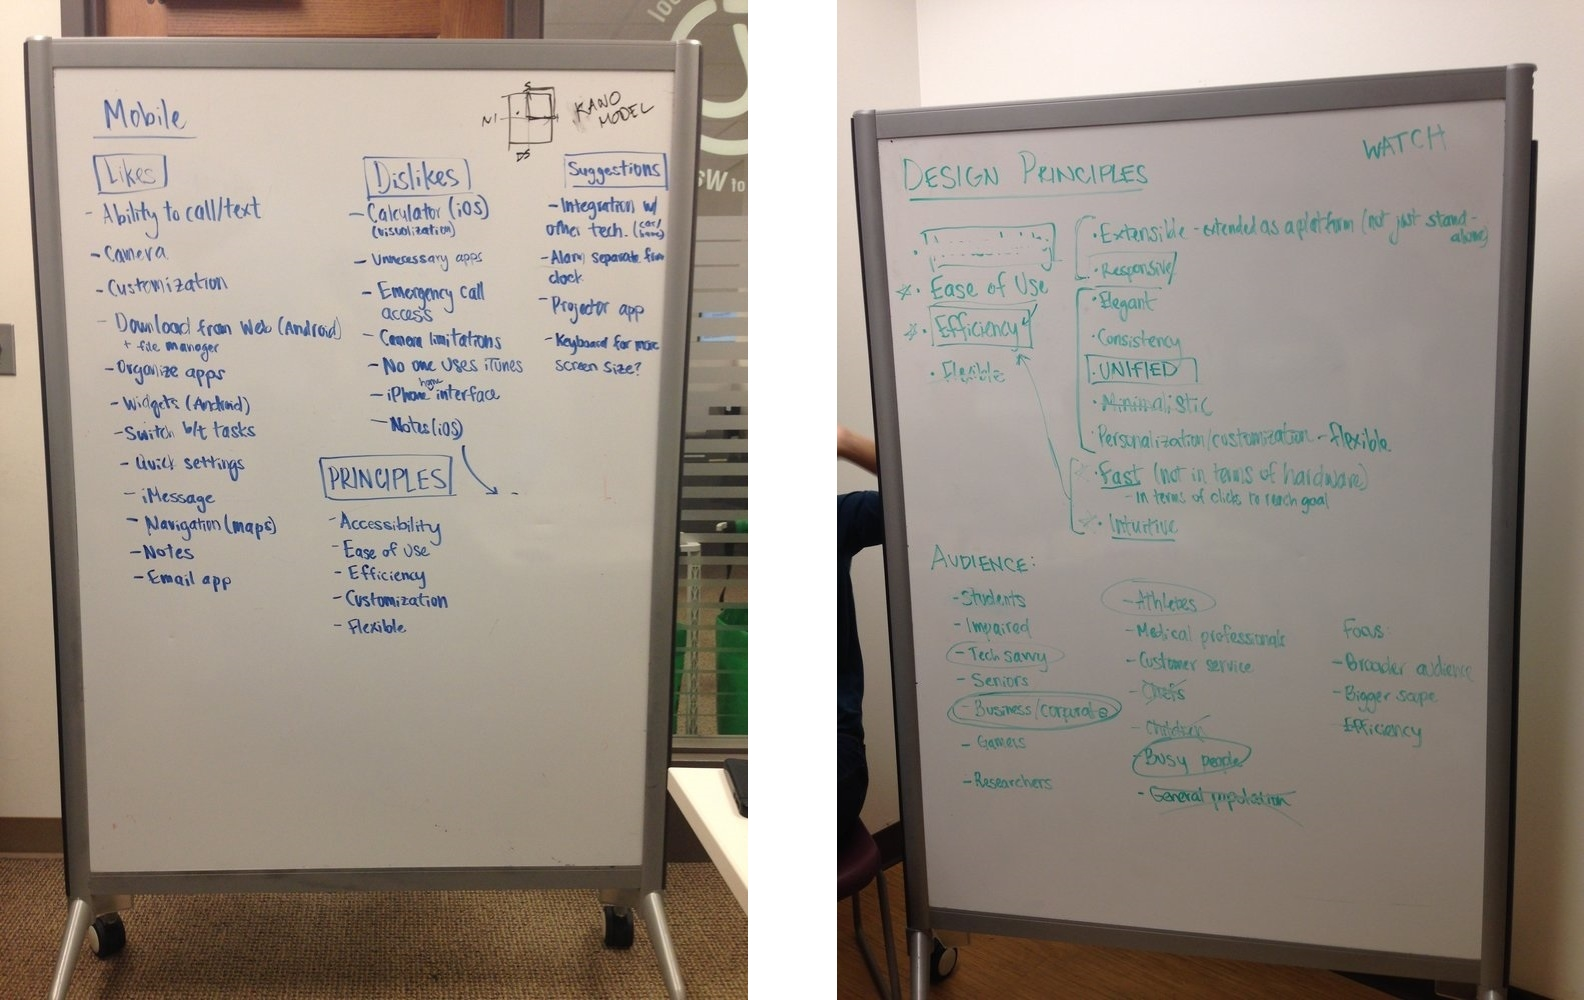 Mobile
S
NI
DS
KANO
MODEL
Likes
- Ability to call/text
- Camera
- Customization
- Download from Web (Android)
+ file manager
- Organize apps
- Widgets (Android)
- Switch b/t tasks
- Quick settings
- iMessage
- Navigation (maps)
- Notes
- Email app
Dislikes
- Calculator (iOS)
(visualization)
- Unnecessary apps
- Emergency call
access
- Camera limitations
- No one uses iTunes
- iPhone home interface
- Notes (iOS)
Suggestions
- Integration w/
other tech. (car/
home)
- Alarm separate from
clock
- Projector app
- Keyboard for more
screen size?
PRINCIPLES
- Accessibility
- Ease of Use
- Efficiency
- Customization
- Flexible
of W
WATCH
DESIGN PRINCIPLES
· Ease of Use
· Efficiency
· Flexible
· Extensible - extended as a platform (not just stand-
alone)
· Responsive
· Elegant
· Consistency
· UNIFIED
· Minimalistic
· Personalization/customization - flexible
· Fast (not in terms of hardware)
- in terms of clicks to reach goal
· Intuitive
AUDIENCE:
- Students
- Impaired
- Tech savvy
- Seniors
- Business/corporate
- Gamers
- Researchers
- Athletes
- Medical professionals
- Customer service
- Chefs
- Children
- Busy people
- General population
Focus:
- Broader audience
- Bigger scope
- Efficiency